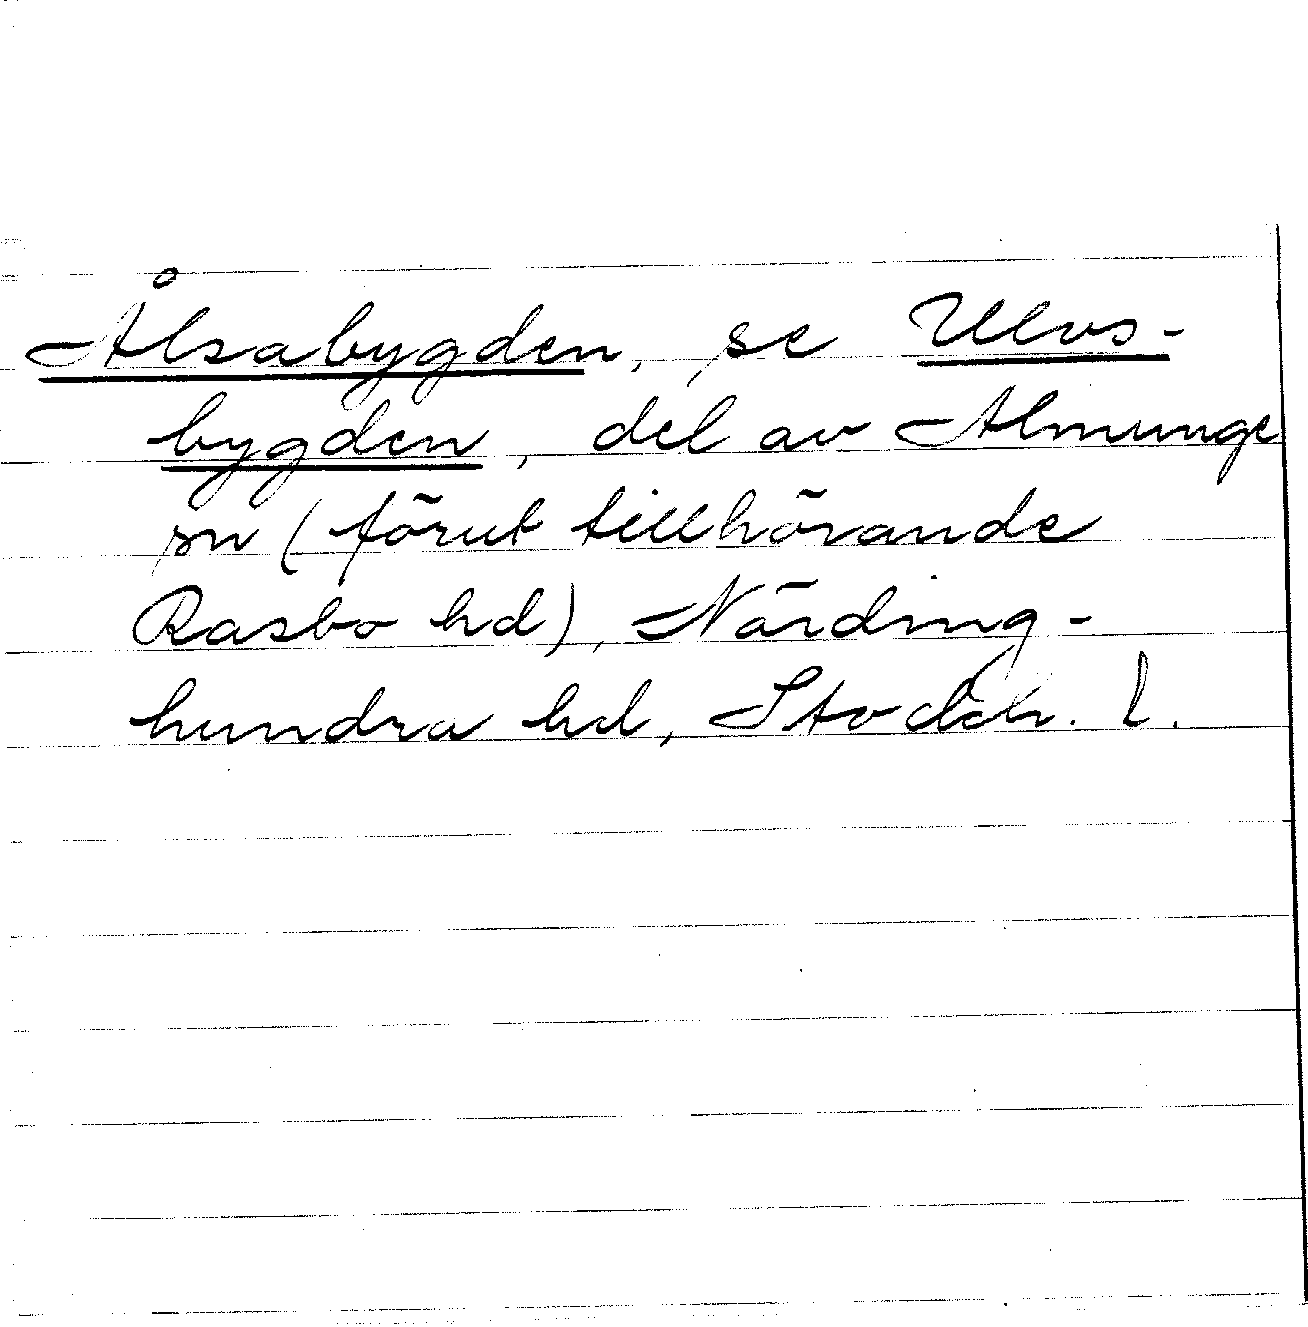 Ålsabygden, se Ulvs-
bygden, del av Almunge
sn (förut tillhörande
Rasbo hd), Närding-
hundra hd, Stockh. l.